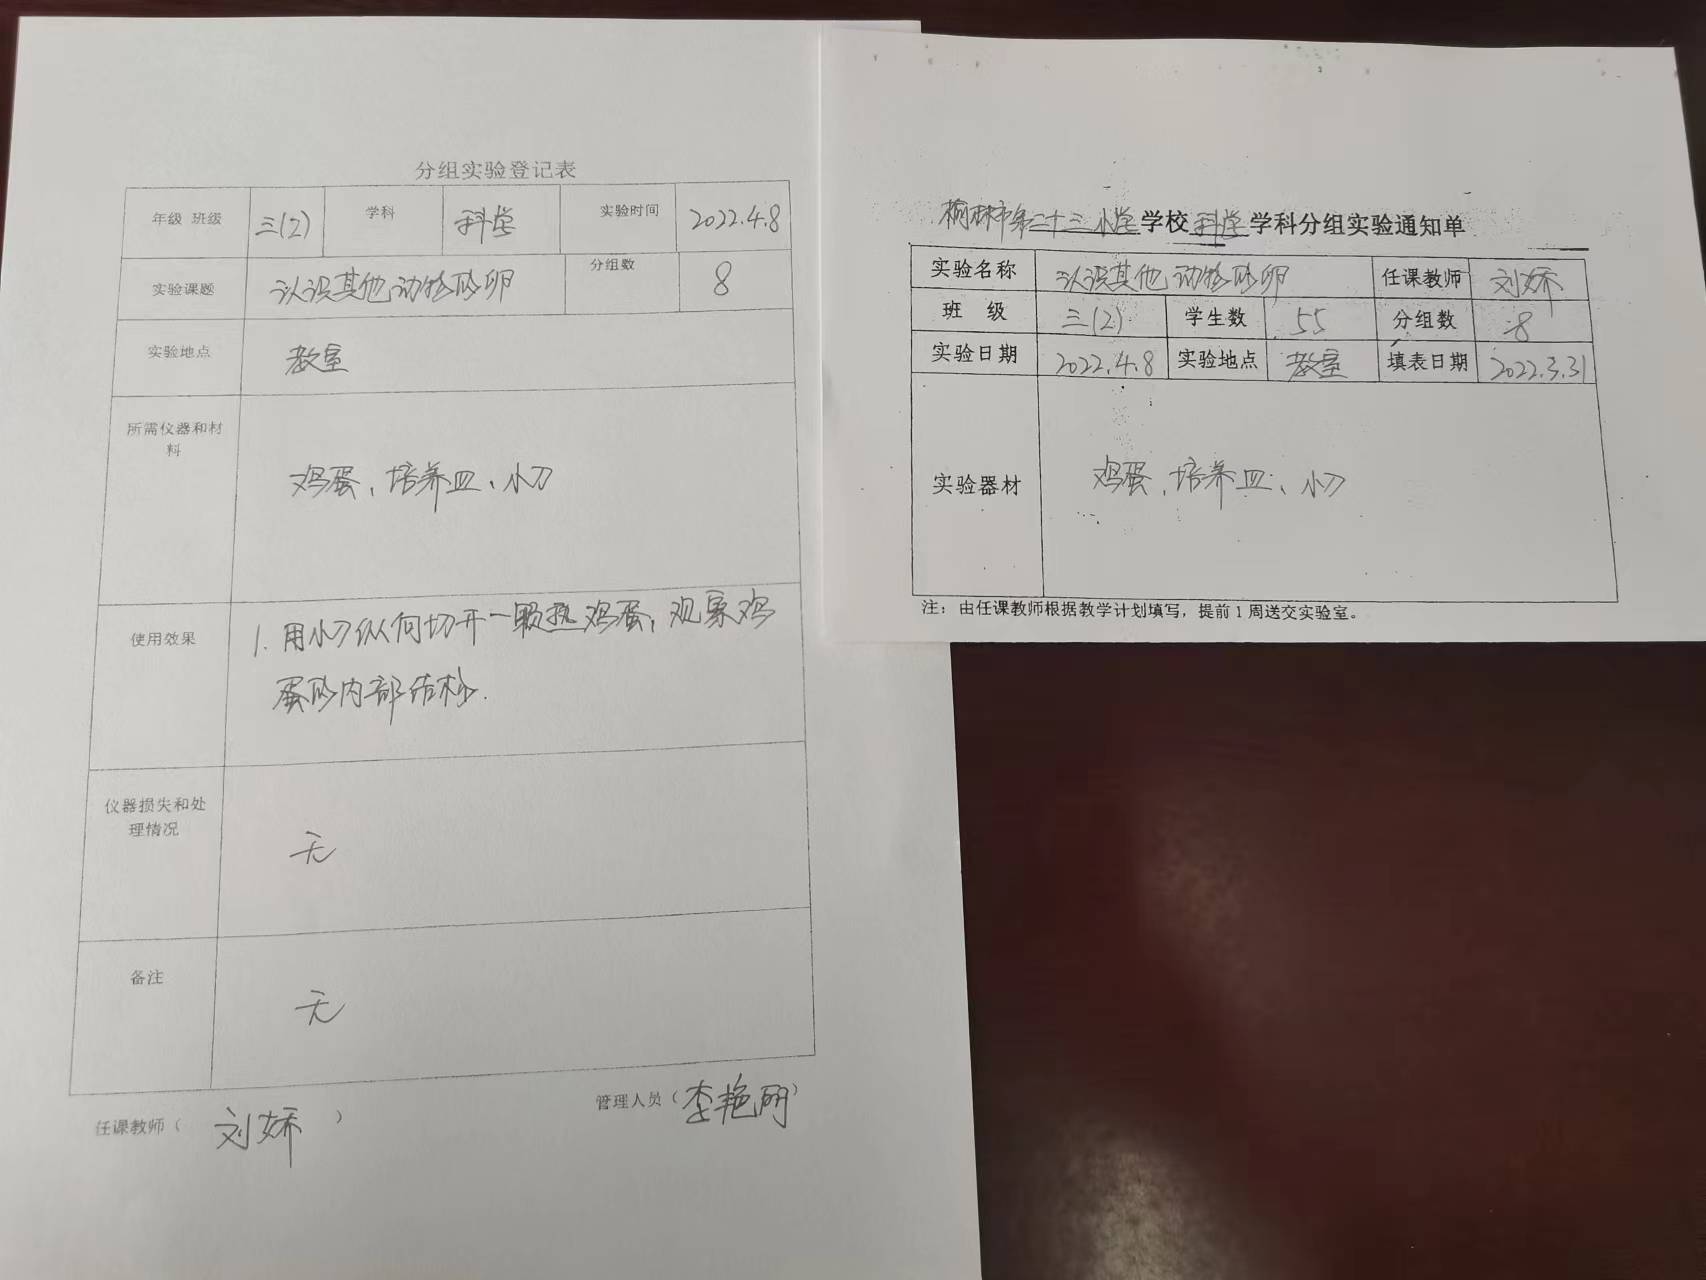 分组实验登记表
年级 班级 三(2) 学科 科学 实验时间 2022.4.8
实验课题 认识其他动物的卵 分组数 8
实验地点 教室
所需仪器和材
料
鸡蛋、培养皿、小刀
使用效果
1. 用小刀纵向切开一颗熟鸡蛋，观察鸡
蛋的内部结构.
仪器损失和处
理情况
无
备注 无
任课教师（ 刘娇 ） 管理人员（李艳丽）
榆林市第二十三小学学校科学学科分组实验通知单
实验名称 认识其他动物的卵 任课教师 刘娇
班 级 三(2) 学生数 55 分组数 8
实验日期 2022.4.8 实验地点 教室 填表日期 2022.3.31
实验器材 鸡蛋、培养皿、小刀
注：由任课教师根据教学计划填写，提前1周送交实验室。